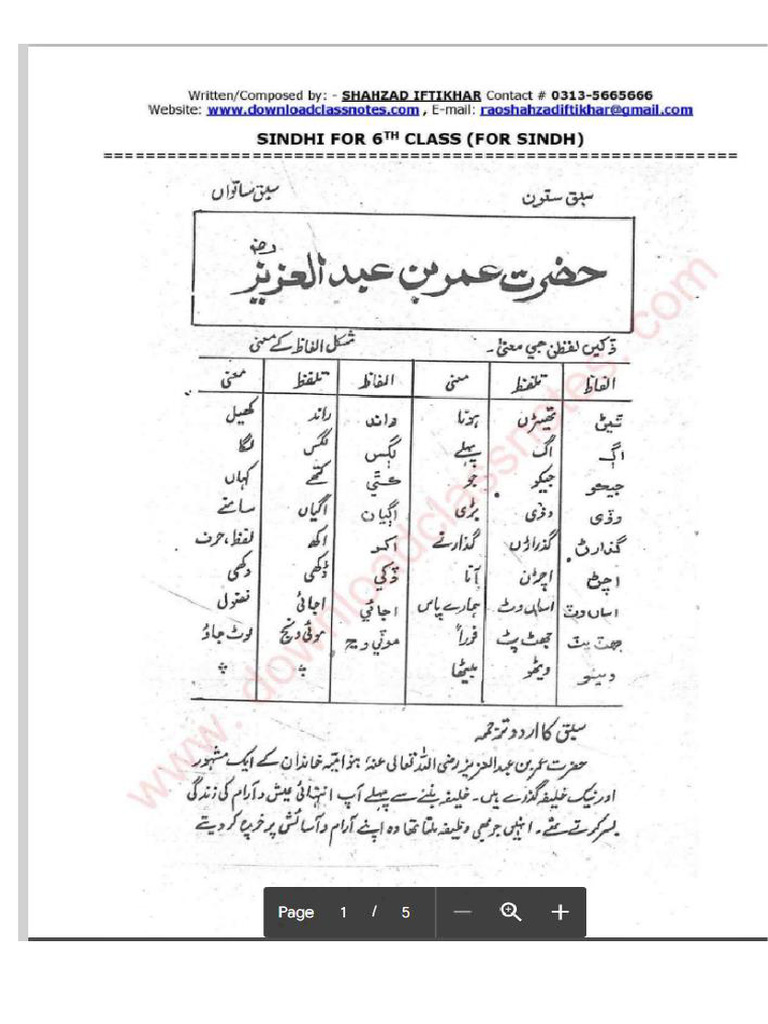 Written/Composed by: - SHAHZAD IFTIKHAR Contact # 0313-5665666
Website: www.downloadclassnotes.com , E-mail: raoshahzadiftikhar@gmail.com
SINDHI FOR 6TH CLASS (FOR SINDH)
سبق ستون سبق ساتواں
حضرت عمر بن عبد العزیز رضہ
ڏکين لفظن جي معنيٰ۔ مشکل الفاظ کے معنی
الفاظ تلفظ معنی الفاظ تلفظ معنی
ٿيڻ تھیڑن ہونا راند راند کھیل
اڳ اگ پہلے لڳس لگس لگا
جيڪو جیکو جو ڪٿي کتھے کہاں
وڏي وڈی بڑی اڳيان اگیاں سامنے
گذارڻ گذارڑن گذارنے اکر اکھ لفظ، حرف
اچڻ اچڑن آنا ڏکي ڈکھی دکھی
اسان وٽ اساں وٹ ہمارے پاس اجائي اجائی فضول
جھٽ پٽ جھٹ پٹ فوراً موٽي وڃ موٹی ونج لوٹ جاؤ
ويٺو ویٹھو بیٹھا
سبق کا اردو ترجمہ
حضرت عمر بن عبدالعزیز رضی اللہ تعالی عنہ بنو امیہ خاندان کے ایک مشہور
اور نیک خلیفہ گذرے ہیں۔ خلیفہ بننے سے پہلے آپ انتہائی عیش و آرام کی زندگی
بسر کرتے تھے۔ انہیں جو بھی وظیفہ ملتا تھا وہ اپنے آرام و آسائش پر خرچ کر دیتے
www.downloadclassnotes.com
Page 1 / 5